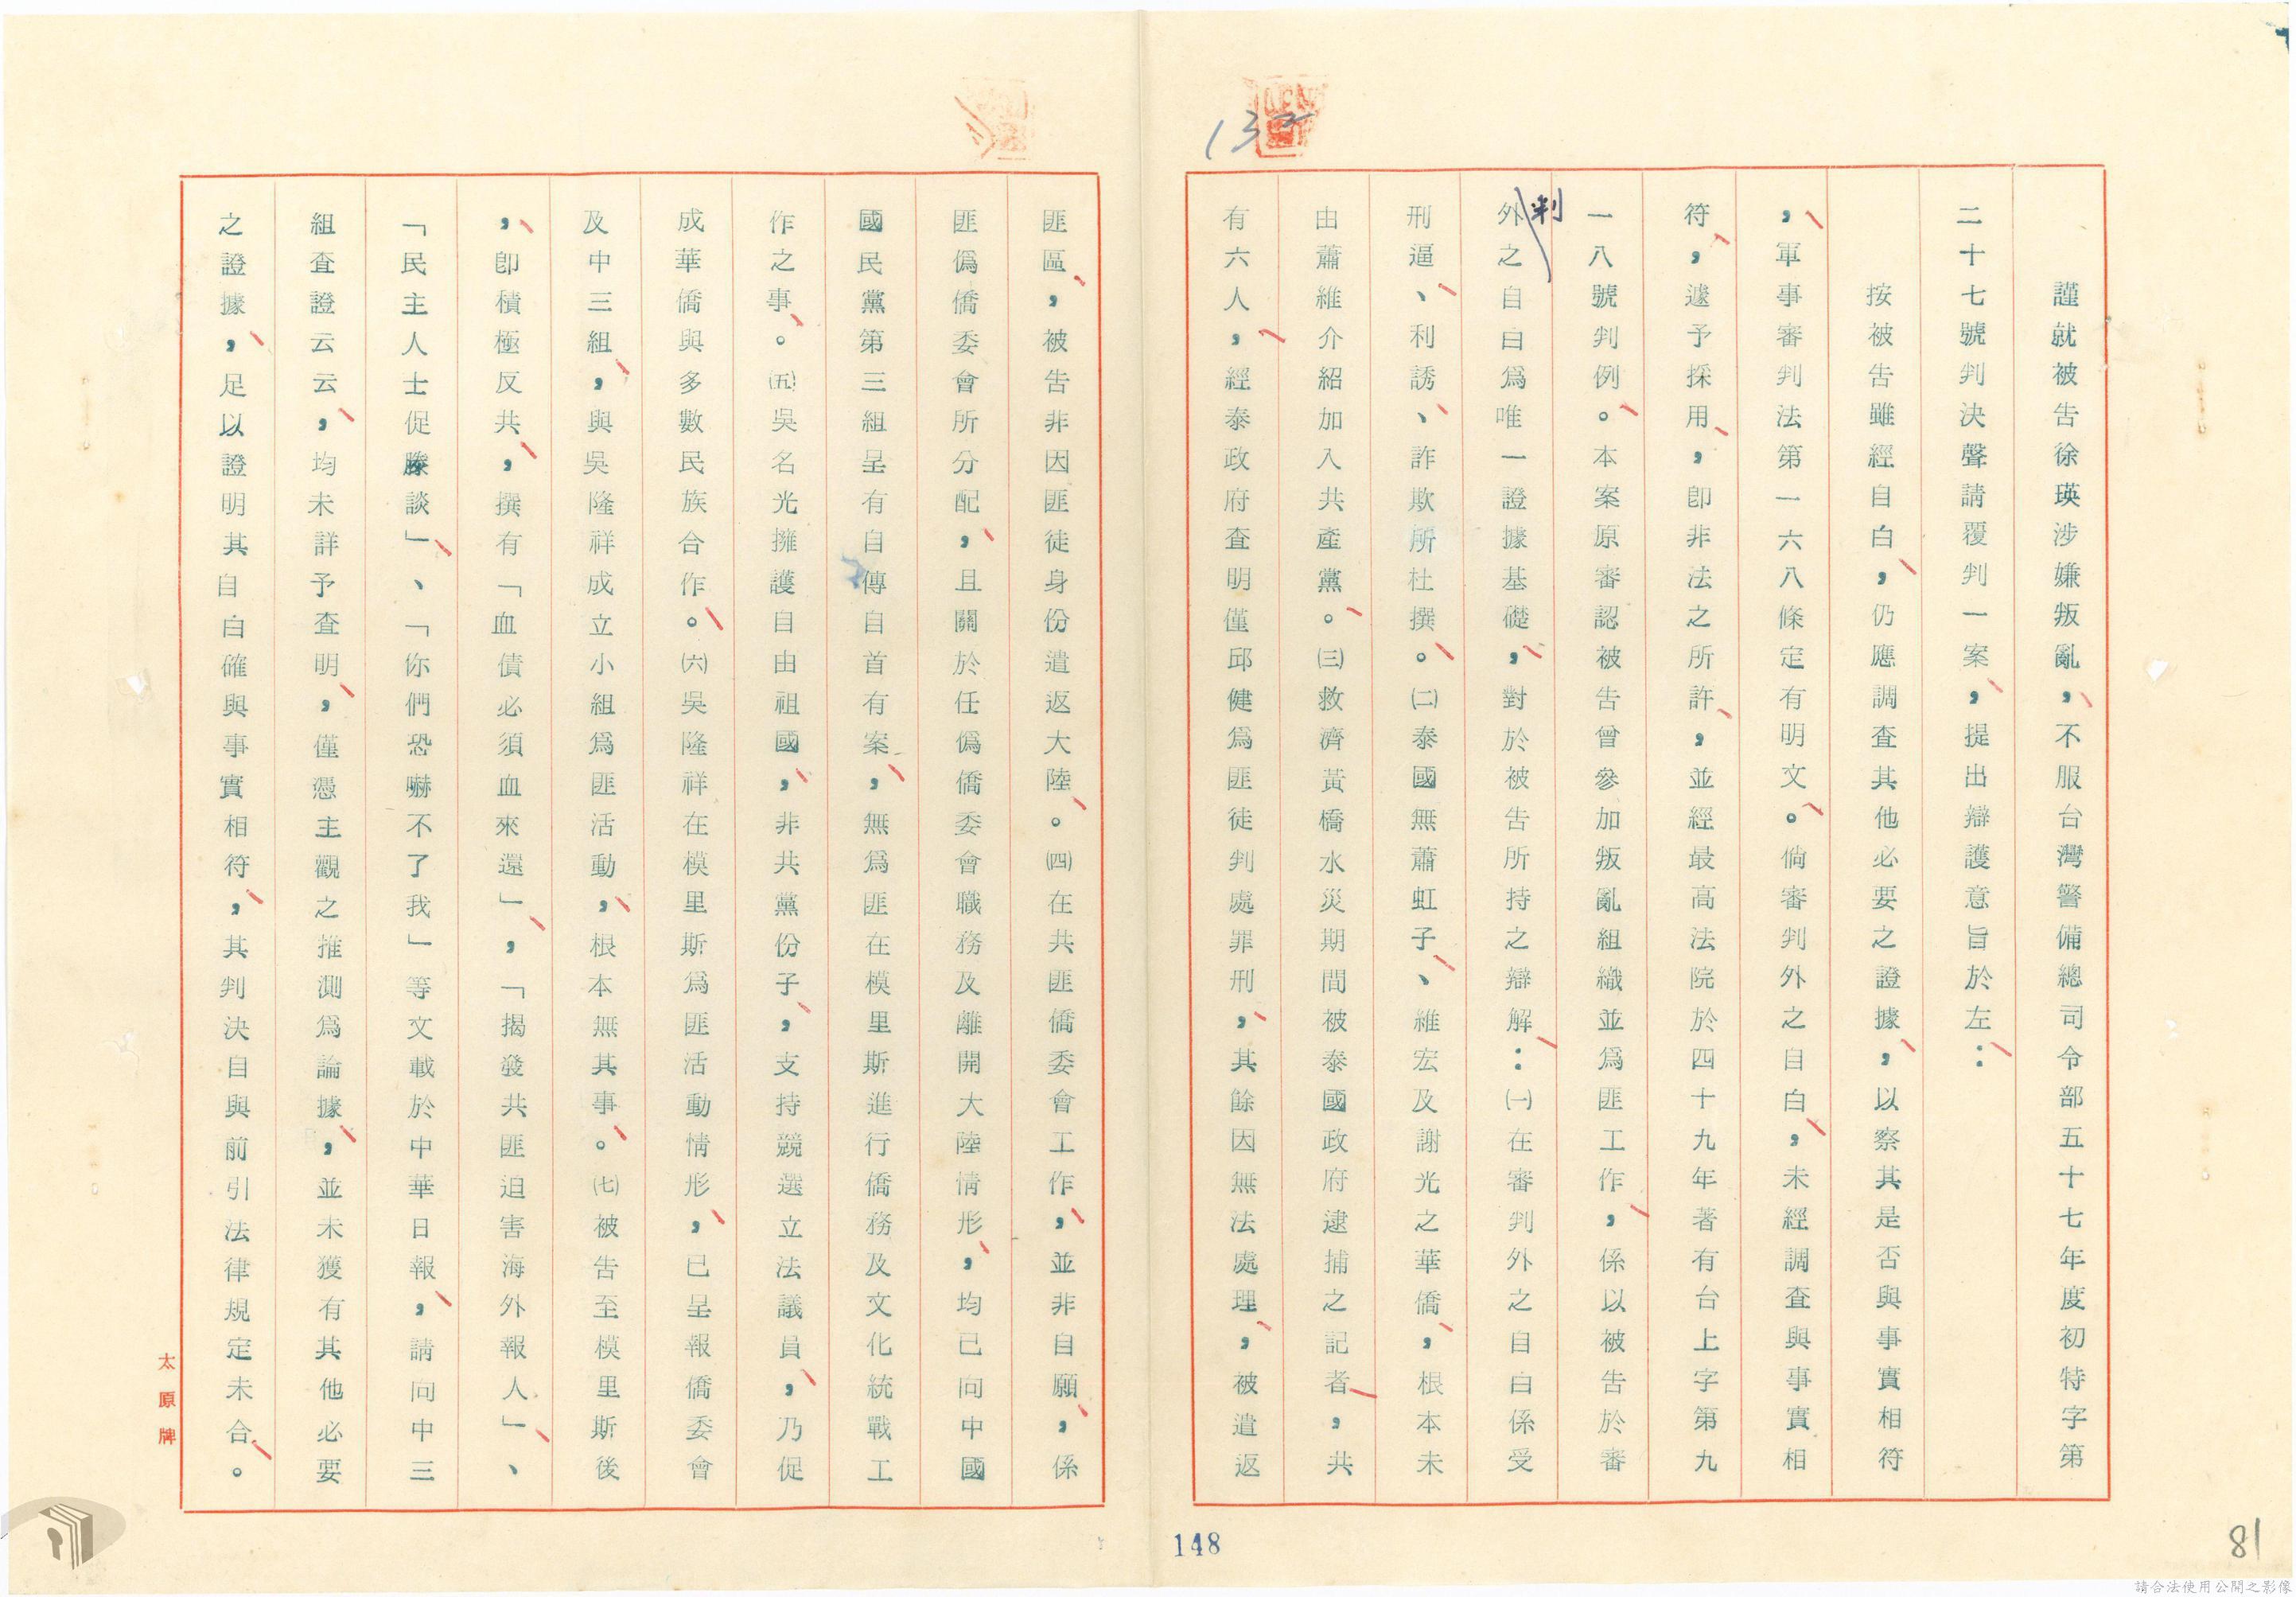 謹就被告徐瑛涉嫌叛亂,不服台灣警備總司令部五十七年度初特字第
二十七號判決聲請覆判一案,提出辯護意旨於左:
按被告雖經自白,仍應調查其他必要之證據,以察其是否與事實相符
,軍事審判法第一六八條定有明文。倘審判外之自白,未經調查與事實相
符,遽予採用,即非法之所許,並經最高法院於四十九年著有台上字第九
一八號判例。本案原審認被告曾參加叛亂組織並爲匪工作,係以被告於審
判
外之自白爲唯一證據基礎,對於被告所持之辯解:㈠在審判外之自白係受
刑逼、利誘、詐欺所杜撰。㈡泰國無蕭虹子、維宏及謝光之華僑,根本未
由蕭維介紹加入共產黨。㈢救濟黃橋水災期間被泰國政府逮捕之記者,共
有六人,經泰政府查明僅邱健爲匪徒判處罪刑,其餘因無法處理,被遣返
匪區,被告非因匪徒身份遣返大陸。㈣在共匪僑委會工作,並非自願,係
匪僞僑委會所分配,且關於任僞僑委會職務及離開大陸情形,均已向中國
國民黨第三組呈有自傳自首有案,無爲匪在模里斯進行僑務及文化統戰工
作之事。㈤吳名光擁護自由祖國,非共黨份子,支持競選立法議員,乃促
成華僑與多數民族合作。㈥吳隆祥在模里斯爲匪活動情形,已呈報僑委會
及中三組,與吳隆祥成立小組爲匪活動,根本無其事。㈦被告至模里斯後
,卽積極反共,撰有「血債必須血來還」,「揭發共匪迫害海外報人」、
「民主人士促滕談」、「你們恐嚇不了我」等文載於中華日報,請向中三
組查證云云,均未詳予查明,僅憑主觀之推測爲論據,並未獲有其他必要
之證據,足以證明其自白確與事實相符,其判決自與前引法律規定未合。
太原牌
132
148
81
請合法使用公開之影像